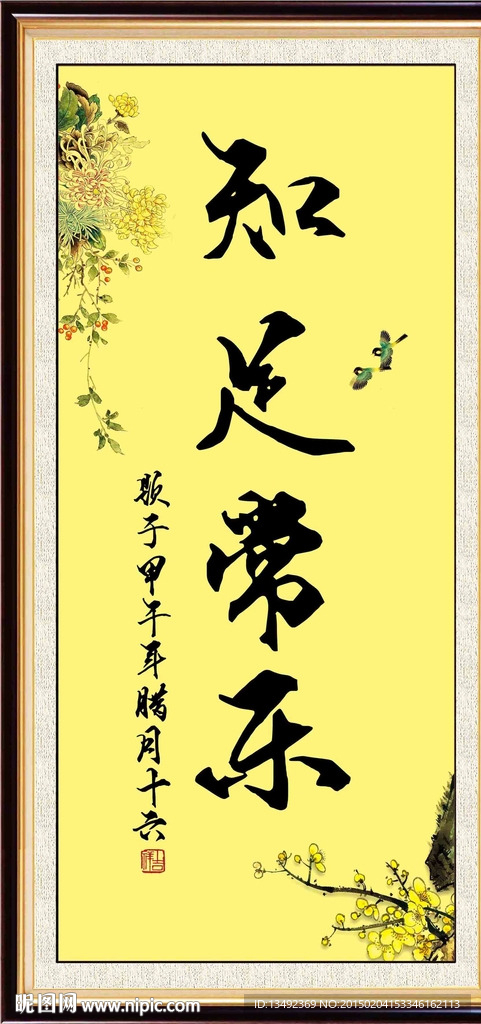 知足常乐
题于甲午年腊月十六
昵图网 www.nipic.com
ID:13492369 NO:20150204153346162113